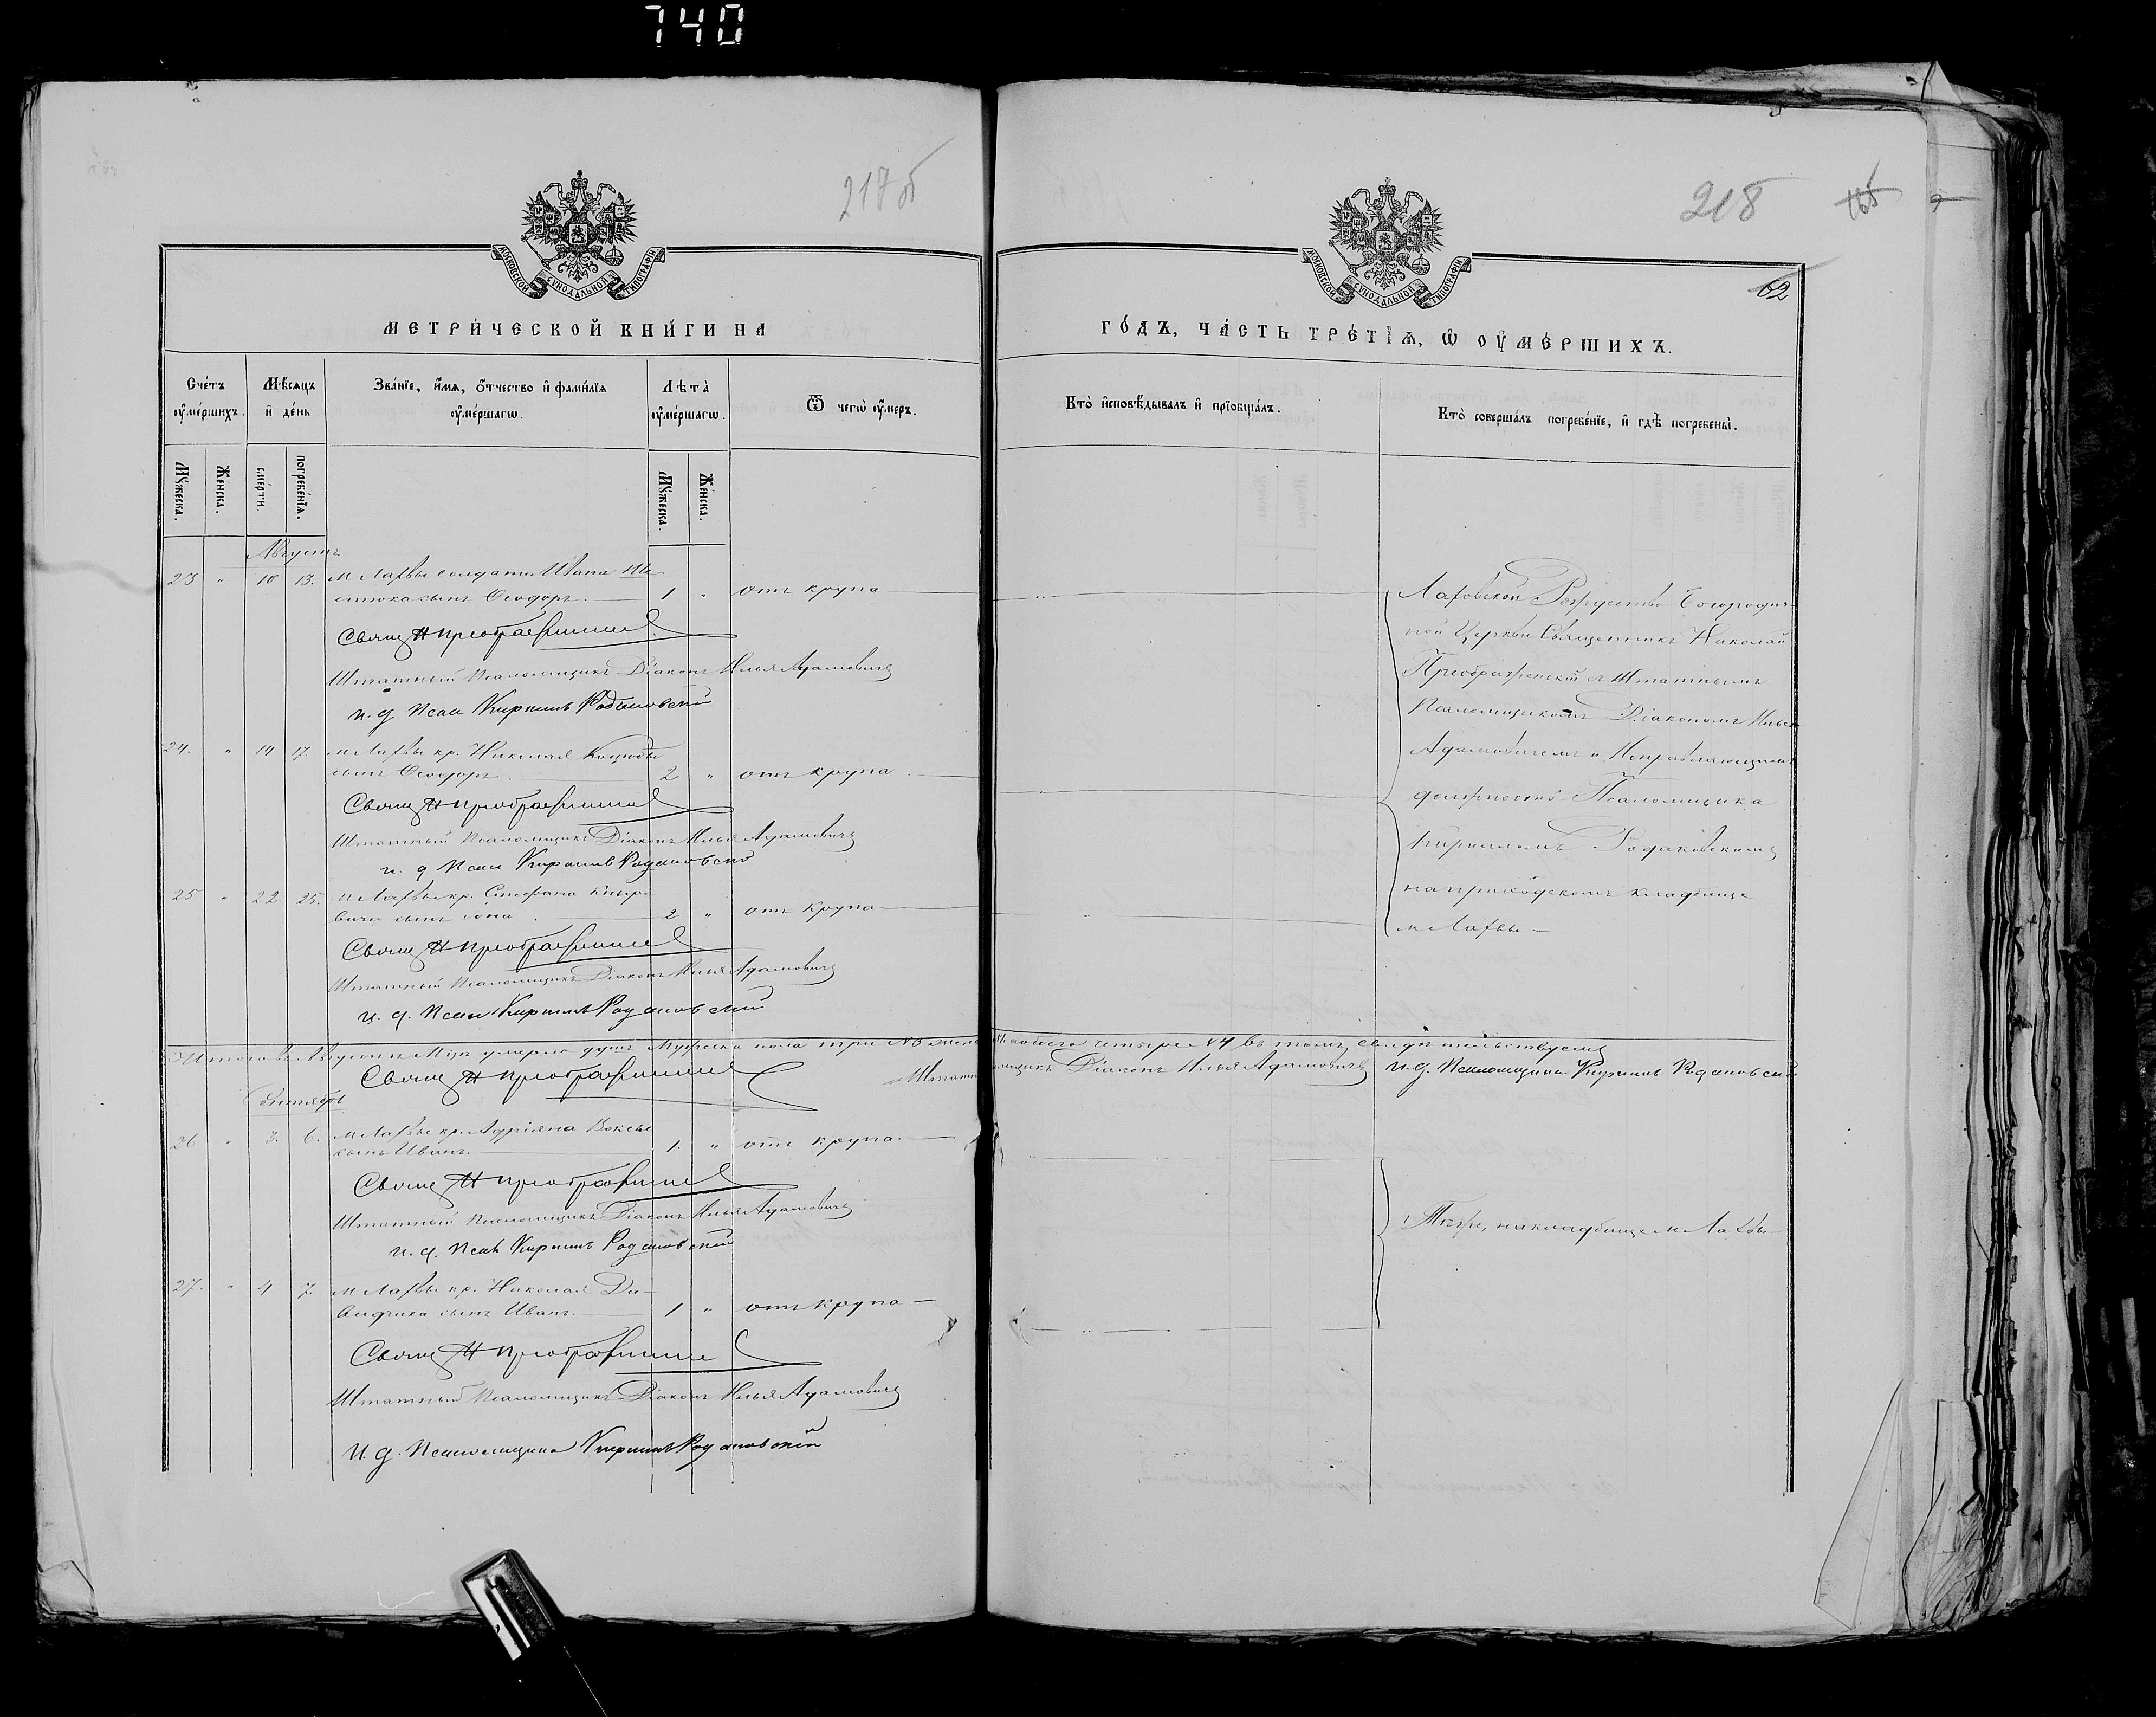 740
217 об
МОСКОВСКОЙ СУНОДАЛЬНОЙ ТИПОГРАФІИ
МЕТРИ́ЧЕСКОЙ КНИ́ГИ НА
Сче́тъ ѹ҆ме́ршихъ.
Мѣ́сяцъ и҆ де́нь
Зва́нїе, и҆́мѧ, ѻ҆́тчество и҆ фами́лїѧ ѹ҆ме́ршагѡ.
Лѣ́та ѹ҆ме́ршагѡ.
Ѿ чегѡ̀ ѹ҆́меръ.
Мꙋ́жеска.
Же́нска.
сме́рти.
погребе́нїѧ.
Мꙋ́жеска.
Же́нска.
Августъ
23 " 10 13. м Лахвы солдата Ивана
сынъ Ѳеодоръ. 1 " отъ крупа
Свящ Н Преображенскій
Штатный Псаломщикъ Діаконъ Илья Адамовичъ
и. д. Псал Кириллъ Родаковскій
24. " 14 17. м Лахвы кр. Николая Коцюбы
сынъ Ѳеодоръ. 2 " отъ крупа.
Свящ Н Преображенскій
Штатный Псаломщикъ Діаконъ Илья Адамовичъ
и. д Псал Кириллъ Родаковскій
25 " 22 25. м Лахвы кр. Стефана
вича сынъ 2 " отъ крупа
Свящ Н Преображенскій
Штатный Псаломщикъ Діаконъ Илья Адамовичъ
и. д. Псал Кириллъ Родаковскій
Итого въ Августѣ Мцѣ умерло душъ Мужеска пола три №3
Свящ Н Преображенскій
Сентябрь
26 " 3. 6. м Лахвы кр. Адріяна
сынъ Иванъ. 1. " отъ крупа.
Свящ Н Преображенскій
Штатный Псаломщикъ Діаконъ Илья Адамовичъ
и. д. Псал Кириллъ Родаковскій
27. " 4 7. м Лахвы кр. Николая
сынъ Иванъ. 1 " отъ крупа
Свящ Н Преображенскій
Штатный Псаломщикъ Діаконъ Илья Адамовичъ
и. д. Псаломщика Кириллъ Родаковскій
218
62
МОСКОВСКОЙ СУНОДАЛЬНОЙ ТИПОГРАФІИ
ГО́ДЪ, ЧА́СТЬ ТРЕ́ТЇѦ, Ѡ҆ ОУ҆МЕ́РШИХЪ.
Кто̀ и҆сповѣ́дывалъ и҆ прїѡбща́лъ.
Кто̀ соверша́лъ погребе́нїе, и҆ гдѣ̀ погребены̀.
Лаховской Рождество Богородич-
ной Церкви Священникъ Николай
Преображенскій съ Штатнымъ
Псаломщикомъ Діакономъ Ильею
Адамовичемъ и Исправляющимъ
должность Псаломщика
Кирилломъ Родаковскимъ
на приходскомъ кладбище
м Лахвы
всего четыре №4 въ томъ свидѣтельствуемъ
Діаконъ Илья Адамовичъ и. д. Псаломщика Кириллъ Родаковскій
Тѣже, на кладбище м Лахвы